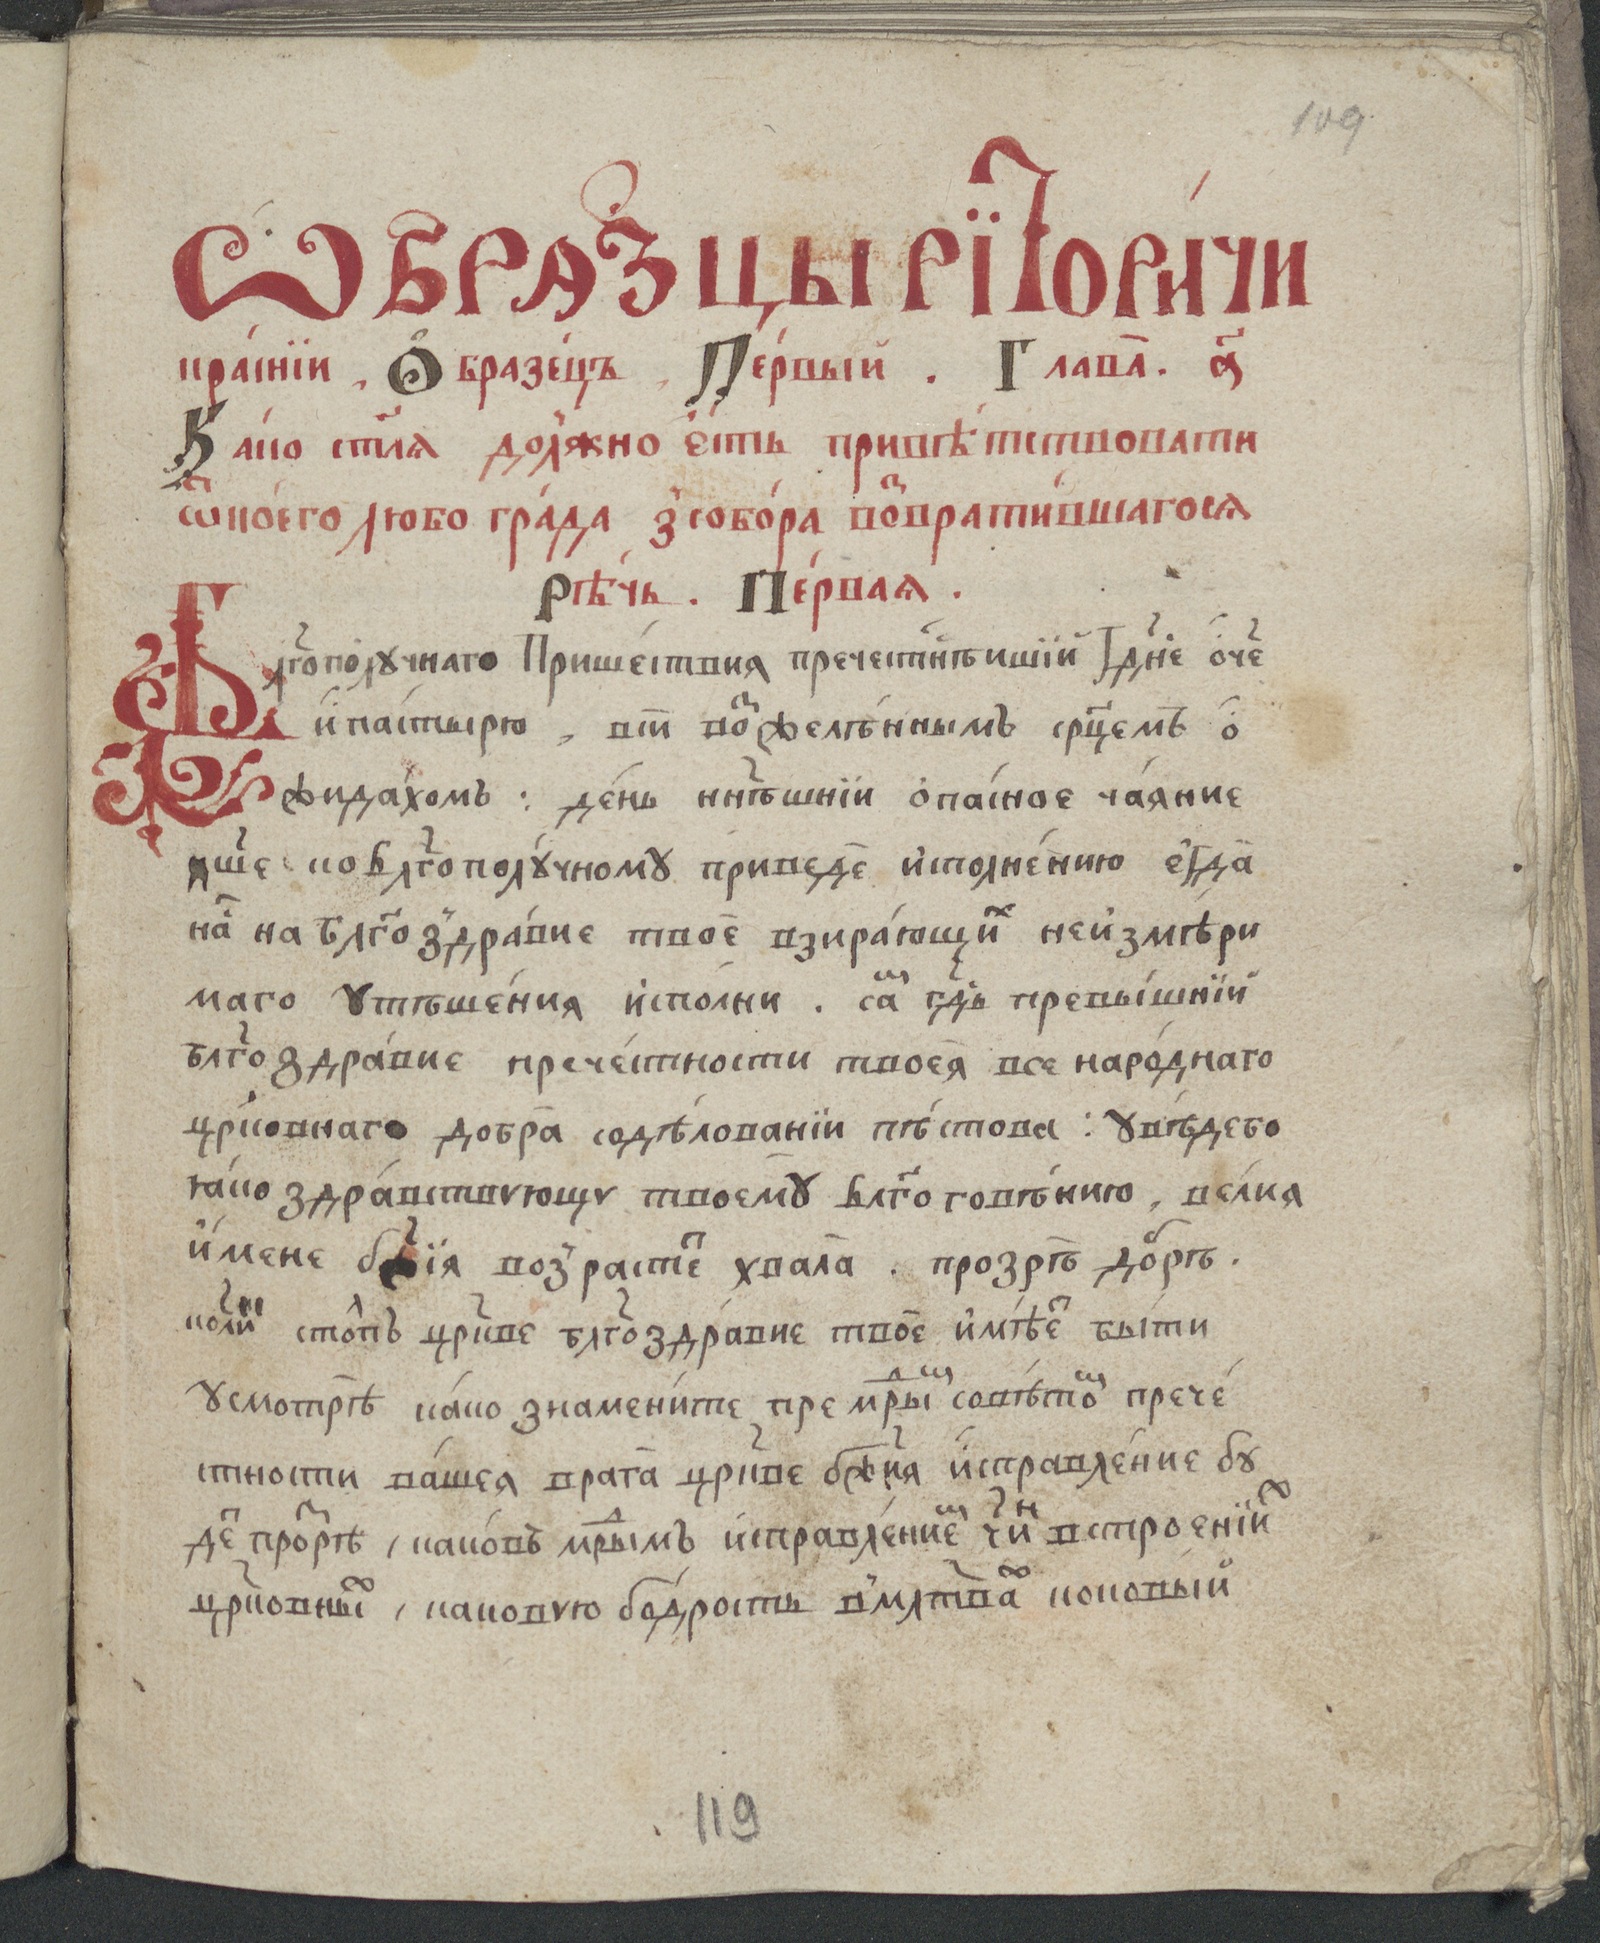 109
Ѡбразцы рїторичи
кра́снїи , Ѻбразе́цъ , Пе́рвый . Глава҃ . а҃
Ка́ко ст҃лѧ до́лжно є҆́сть привѣ́тствовати
ѿкоегѡ любо гра́да з̾собо́ра во́звратившагосѧ
Рѣ́чь . Пе́рваѧ .
Бл҃гополꙋчнаго Прише́ствиѧ пречестнѣишїй Гдн҃е ѻ҆́ч҃е
и҆па́стырю , всѝ возжелѣ́ннымъ ср҃цемъ ѻ҆
жида́хомъ : де́нь нн҃ѣшнїи ѻ҆па́сное ча́ѧние
ꙗше ко бл҃гополꙋ́чномꙋ приведѐ и҆сполне́нию єгда̀
на́с на бл҃гоздра́вие твоѐ взира́ющих неи҆змѣ́ри
маго ꙋтѣше́ниѧ и҆спо́лни . са́м гд҃ь превы́шнїй
бл҃гоздра́вие пречестности твоеѧ̀ все наро́днаго
цр҃ковнаго добра̀ содѣ́лованїи пѣ́стова : ꙋвѣдебо
ꙗ́ко здра́вствꙋющꙋ твоемꙋ̀ бл҃гоговѣ́нию , ве́лиѧ
и҆́мене бж҃їѧ возрасте́т хвала̀ . прозрѣ̀ добрѣ .
коли́к сто́лпъ цр҃кве бл҃гоздра́вие твоѐ и҆мѣ́ет бы́ти
ꙋсмотрѣ̀ ка́ко знамени́те премꙋ҃дрым совѣ́том прече́
стности ва́шеѧ врага̀ цр҃кве бж҃иѧ и҆справле́ние бꙋ
дет прозрѣ̀ , како́въ мꙋ҃дрымъ и҆справле́нием чи́н встроенїих
цр҃ковных , каковꙋю бо́дрость вмл҃твах коковы́й
119